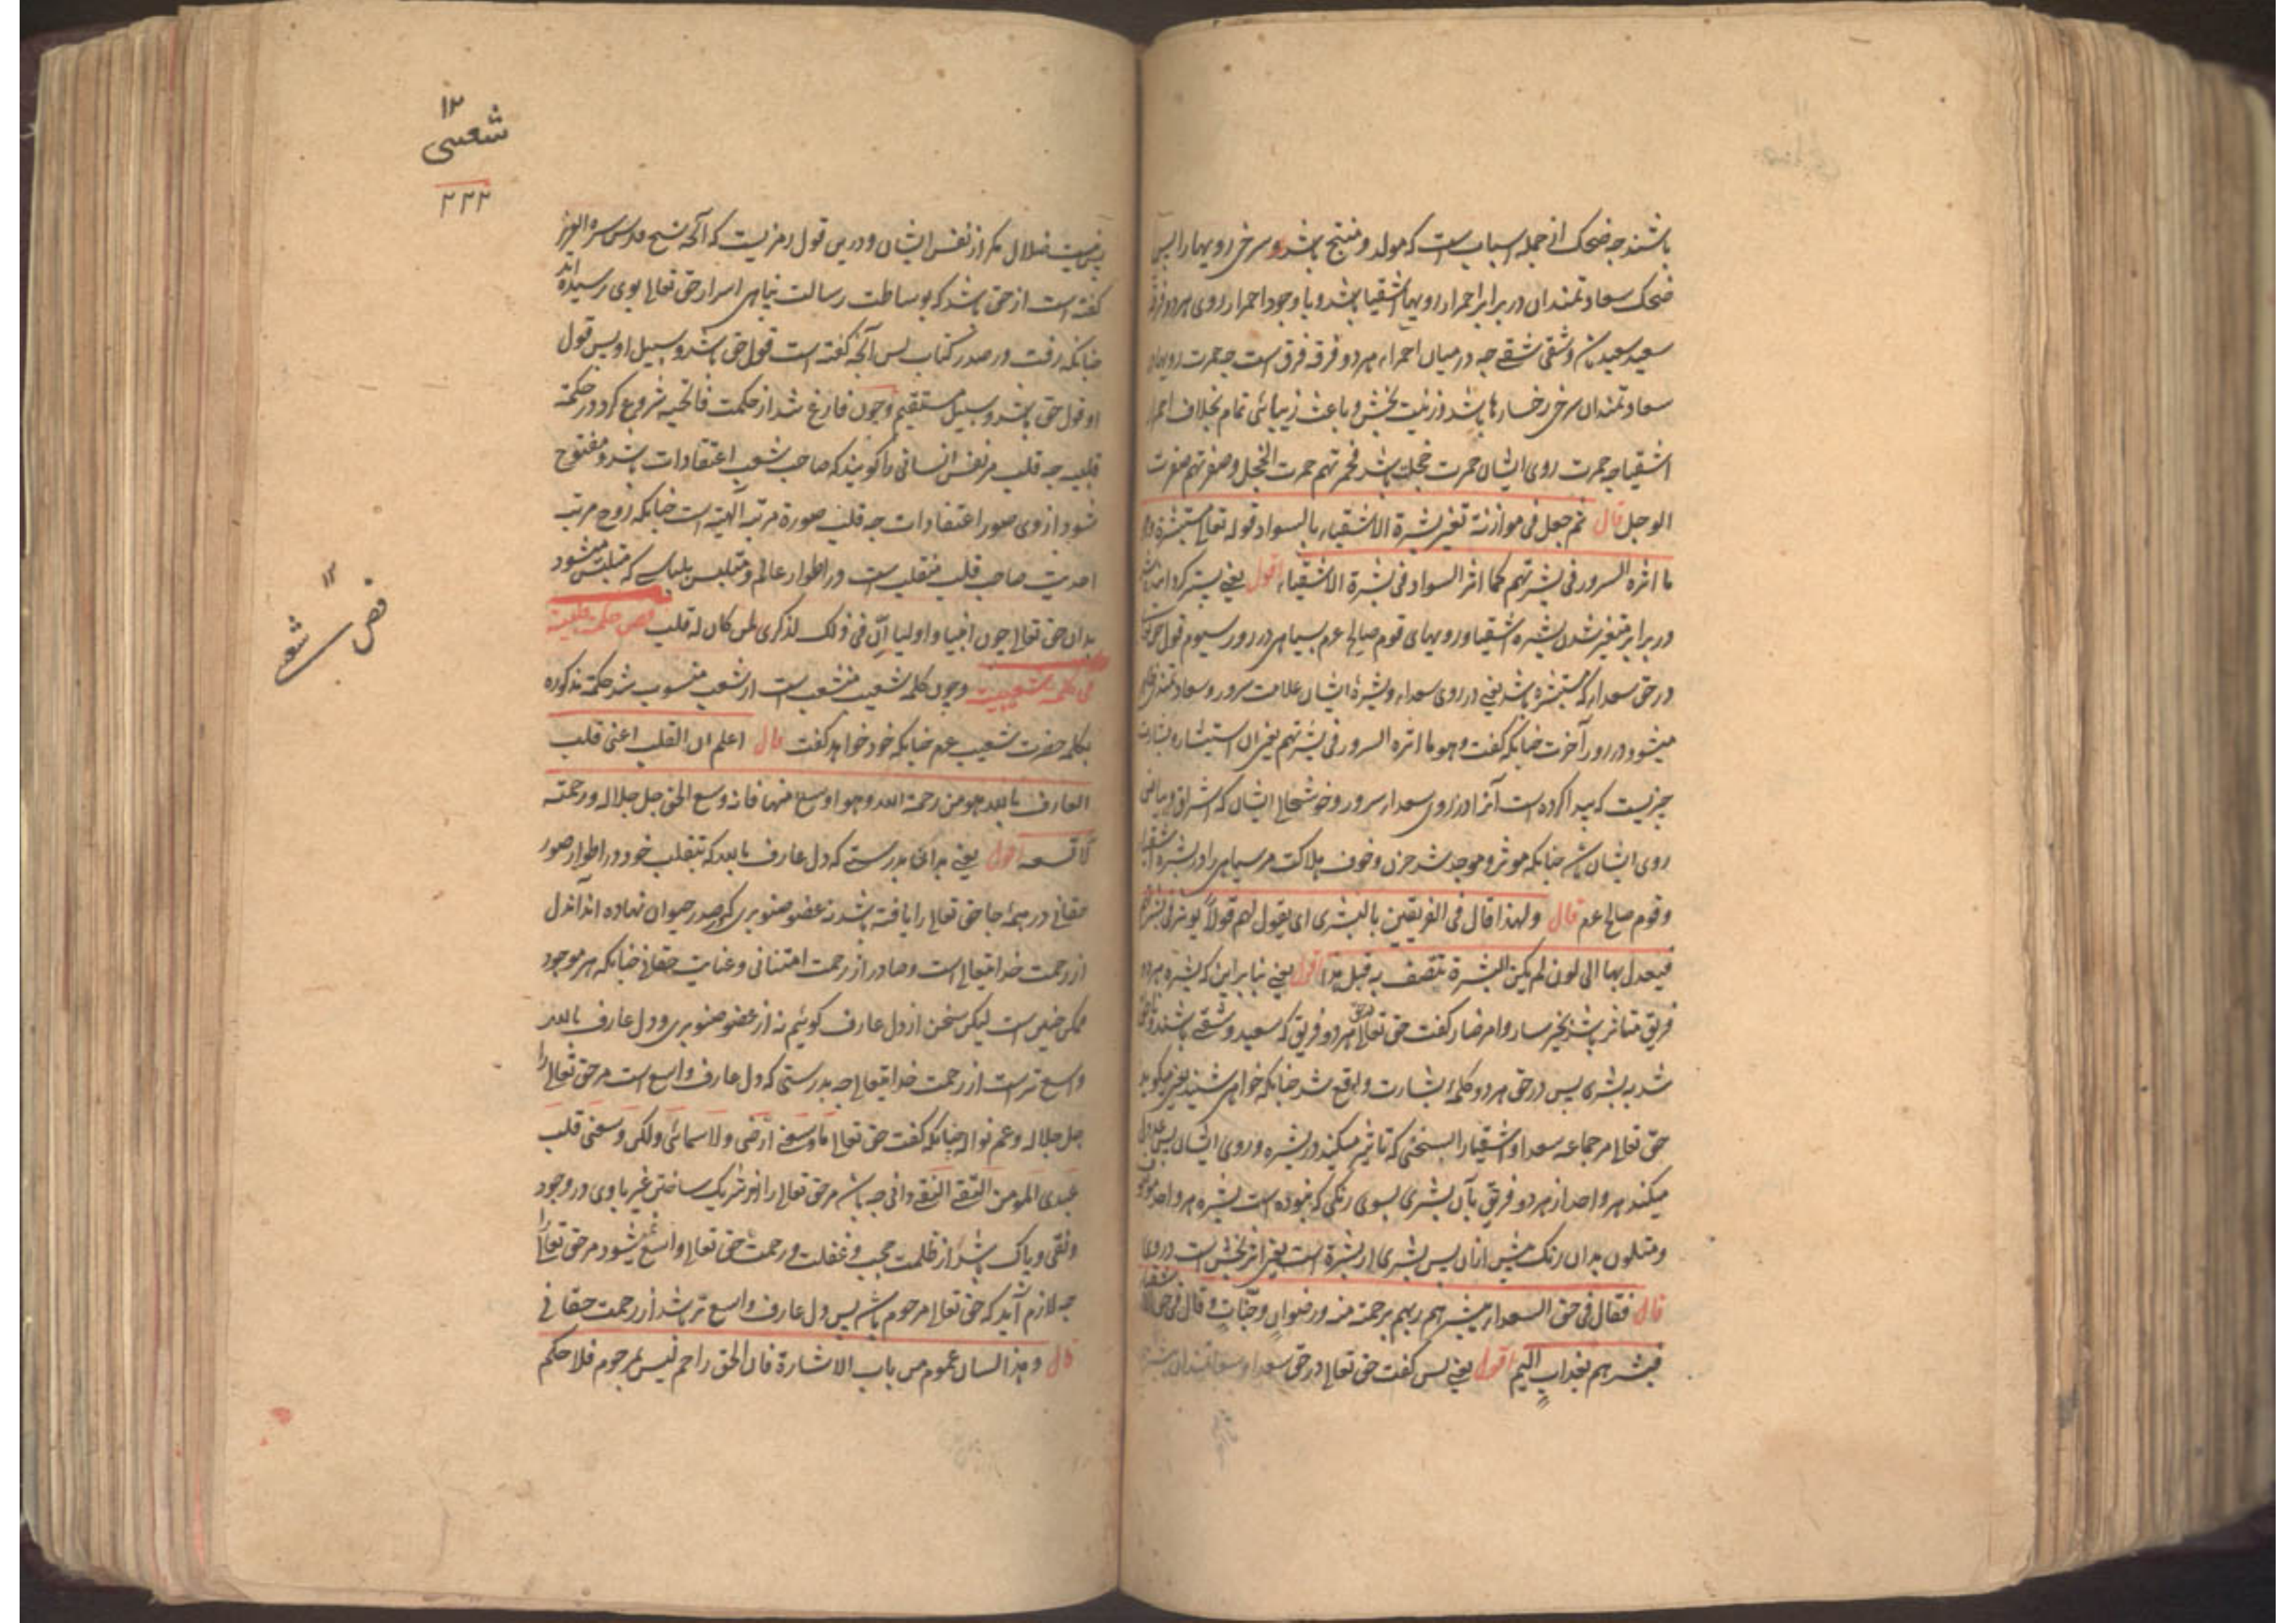 باشند چه ضحک از جمله اسباب است که مولد و منتج باشد و سرخی رویها را پس
ضحک سعادتمندان در برابر احمرار رویهای اشقیا باشد و با وجود احمرار روی هر دو فرقه
سعید سعید باشد و شقی شقی چه در میان احمرار هر دو فرقه فرق است چه حمرت رویهای
سعادتمندان سرخی رخسارها باشد و زینت بخش و باعث زیبائی تمام بخلاف احمرار
اشقیا چه حمرت روی ایشان حمرت خجلت باشد فحمرتهم حمرت الخجل و صفرتهم صفرت
الوجل قال ثم جعل فی موازنة تغیر بشرة الاشقیاء بالسواد قوله تعالی مستبشرة و هو
ما اثره السرور فی بشرتهم کما اثر السواد فی بشرة الاشقیاء اقول یعنی پس کردانید
در برابر متغیر شدن بشره اشقیا و رویهای قوم صالح عم بسیاهی در روز سیوم قول حق
در حق سعداء که مستبشره باشد یعنی در روی سعداء و بشرهٔ ایشان علامت سرور و سعادتمندی
میشود در روز آخرت چنانکه گفت و هو ما اثره السرور فی بشرتهم یعنی آن استبشار و بشارت
چیزیست که پیدا کرده است آنرا در روی سعداء سرور و خوشحالی ایشان که اشراق و بیاض
روی ایشان شد چنانکه موثر و موجد شد حزن و خوف هلاکت مر سیاهی را در بشره اشقیا
و قوم صالح عم قال و لهذا قال فی الفریقین بالبشری ای یقول لهم قولا یوثر فی بشرتهم
فیعدل بها الی لون لم یکن البشرة تتصف به قبل هذا اقول یعنی بنا بر این که بشره هر دو
فریق متاثر باشد بخبر سار و امر ضار گفت حق تعالی در حق هر دو فریق که سعید و شقی باشند
شد به بشری پس در حق هر دو کلمهٔ بشارت واقع شد چنانکه خواهی شنید یعنی میگوید
حق تعالی مر جماعه سعدا و اشقیا را سخنی که تاثیر میکند در بشره و روی ایشان پس عدول
میکند هر واحد از هر دو فریق بآن بشری بسوی رنگی که نبوده است بشره هر واحد موصوف
و متلون بدان رنگ پیش ازان پس بشری از بشرة است یعنی اثر بخش است در روی
قال فقال فی حق السعداء یبشرهم ربهم برحمة منه و رضوان و جنات و قال فی حق الاشقیاء
فبشرهم بعذاب الیم اقول یعنی پس گفت حق تعالی در حق سعدا و سعادتمندان
۱۲
شعیبی
۲۳۲
پس نیست ضلال مکر از نفس ایشان و درین قول رمزیست که آنچه شیخ قدس سره العزیز
گفته است از حق باشد که بوساطت رسالت پناهی اسرار حق تعالی بوی رسیده اند
چنانکه رفت در صدر کتاب پس آنچه گفته است قول حق باشد و سبیل او پس قول
او قول حق باشد و سبیل مستقیم و چون فارغ شد از حکمت فاتحیه شروع کرد در حکمة
قلبیه چه قلب مر نفس انسانی را گویند که صاحب شعب اعتقادات باشد و مفتوح
شود از وی صور اعتقادات چه قلب صورة مرتبه الهیة است چنانکه روح مرتبه
احدیت صاحب قلب متقلب است در اطوار عالم و متلبس بلباسی که متلبس میشود
بدان حق تعالی چون انبیا و اولیا ان فی ذلک لذکری لمن کان له قلب فص حکمة قلبیة
فی کلمة شعیبیة و چون کلمه شعیب منشعب است از شعب منسوب شد حکمة مذکوره
بکلمه حضرت شعیب عم چنانکه خود خواهد گفت قال اعلم ان القلب اعنی قلب
العارف بالله هو من رحمة الله و هو اوسع منها فانه وسع الحق جل جلاله و رحمته
لا تسعه اقول یعنی بدانکه بدرستی که دل عارف بالله که بتقلب خود در اطوار صور
حقانی در همهٔ جا حق تعالی را یافته باشد نه عضو صنوبری که در صدر حیوان نهاده اند آندل
از رحمت خدایتعالی است و صادر از رحمت امتنانی و عنایت حقانی چنانکه هر موجود
ممکن چنین است لیکن سخن از دل عارف گوئیم نه از عضو صنوبری و دل عارف بالله
واسع تر است از رحمت خدایتعالی چه بدرستی که دل عارف واسع است مر حق تعالی را
جل جلاله و عم نواله چنانکه گفت حق تعالی ما وسعنی ارضی و لا سمائی و لکن وسعنی قلب
عبدی المومن التقی النقی و انی چه باشد مر حق تعالی را از شریک ساختن غیر با وی در وجود
و نقی و پاک باشد از ظلمت حجب و غفلت و رحمت حق تعالی واسع نمیشود مر حق تعالی را
چه لازم آید که حق تعالی مرحوم باشد پس دل عارف واسع تر باشد از رحمت حقانی
قال و هذا لسان عموم من باب الاشارة فان الحق راحم لیس بمرحوم فلا حکم
۱۲
فص شعیبی